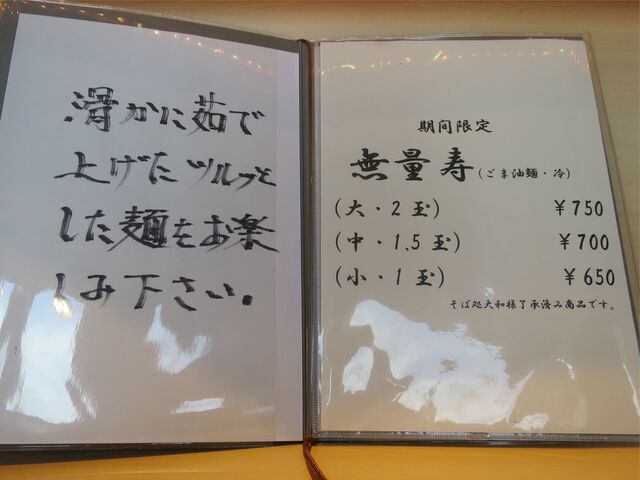 滑かに茹で
上げたツルッと
した麺をお楽
しみ下さい。
期間限定
無量寿(ごま油麺・冷)
(大・2玉) ¥750
(中・1.5玉) ¥700
(小・1玉) ¥650
そば処大和様了承済み商品です。